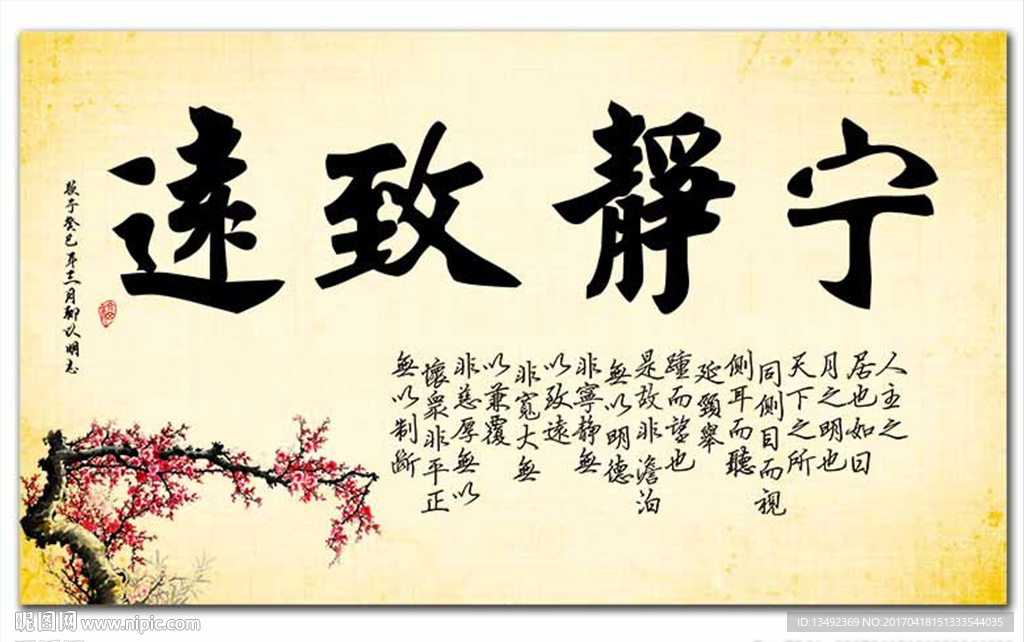 宁靜致遠
人主之
居也如日
月之明也
天下之所
同側目而視
側耳而聽
延頸舉
踵而望也
是故非澹泊
無以明德
非寧静無
以致遠
非寬大無
以兼覆
非慈厚無以
懷衆非平正
無以制斷
癸巳年三月聊以明志
昵图网 www.nipic.com
ID:13492369 NO:20170418151333544035